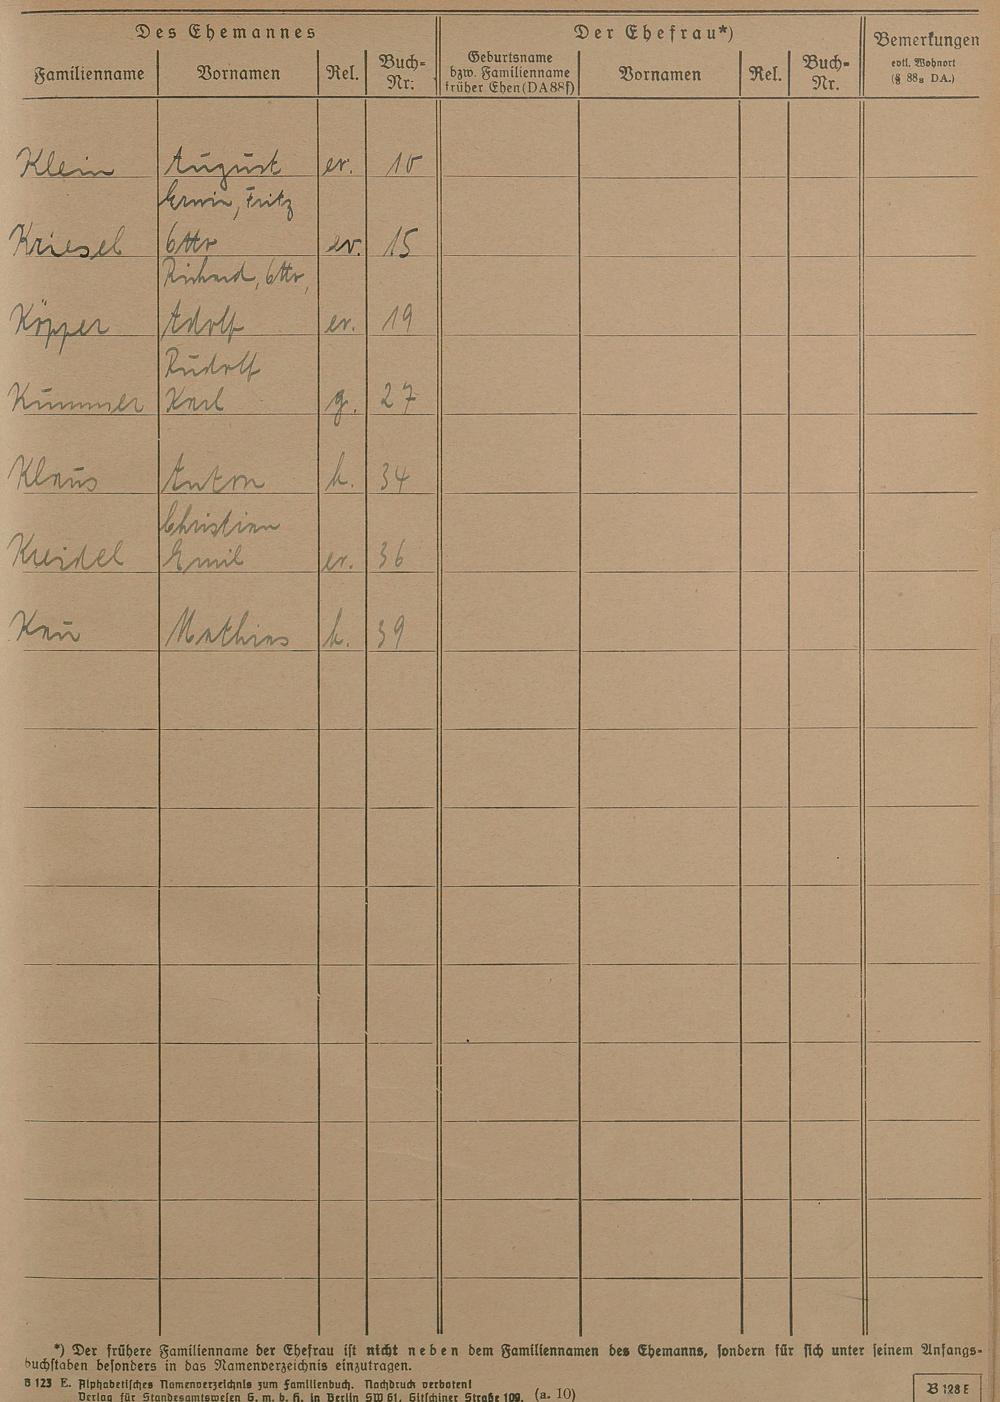 Des Ehemannes
Der Ehefrau*)
Bemerkungen
evtl. Wohnort
(§ 88a DA.)
Familienname
Vornamen
Rel.
Buch-
Nr.
Geburtsname
bzw. Familienname
früher Ehen (DA 88f)
Vornamen
Rel.
Buch-
Nr.
Klein August ev. 10
Erwin, Fritz
Kriesel Otto ev. 15
Richard, Otto,
Köpper Adolf ev. 19
Rudolf
Kummer Karl g. 27
Klaus Anton k. 34
Christian
Kreidel Emil ev. 36
Kau Mathias k. 39
*) Der frühere Familienname der Ehefrau ist nicht neben dem Familiennamen des Ehemanns, sondern für sich unter seinem Anfangs-
buchstaben besonders in das Namenverzeichnis einzutragen.
B 123 E. Alphabetisches Namenverzeichnis zum Familienbuch. Nachdruck verboten!
Verlag für Standesamtswesen G. m. b. H. in Berlin SW 61, Gitschiner Straße 109. (a. 10)
B 123 E